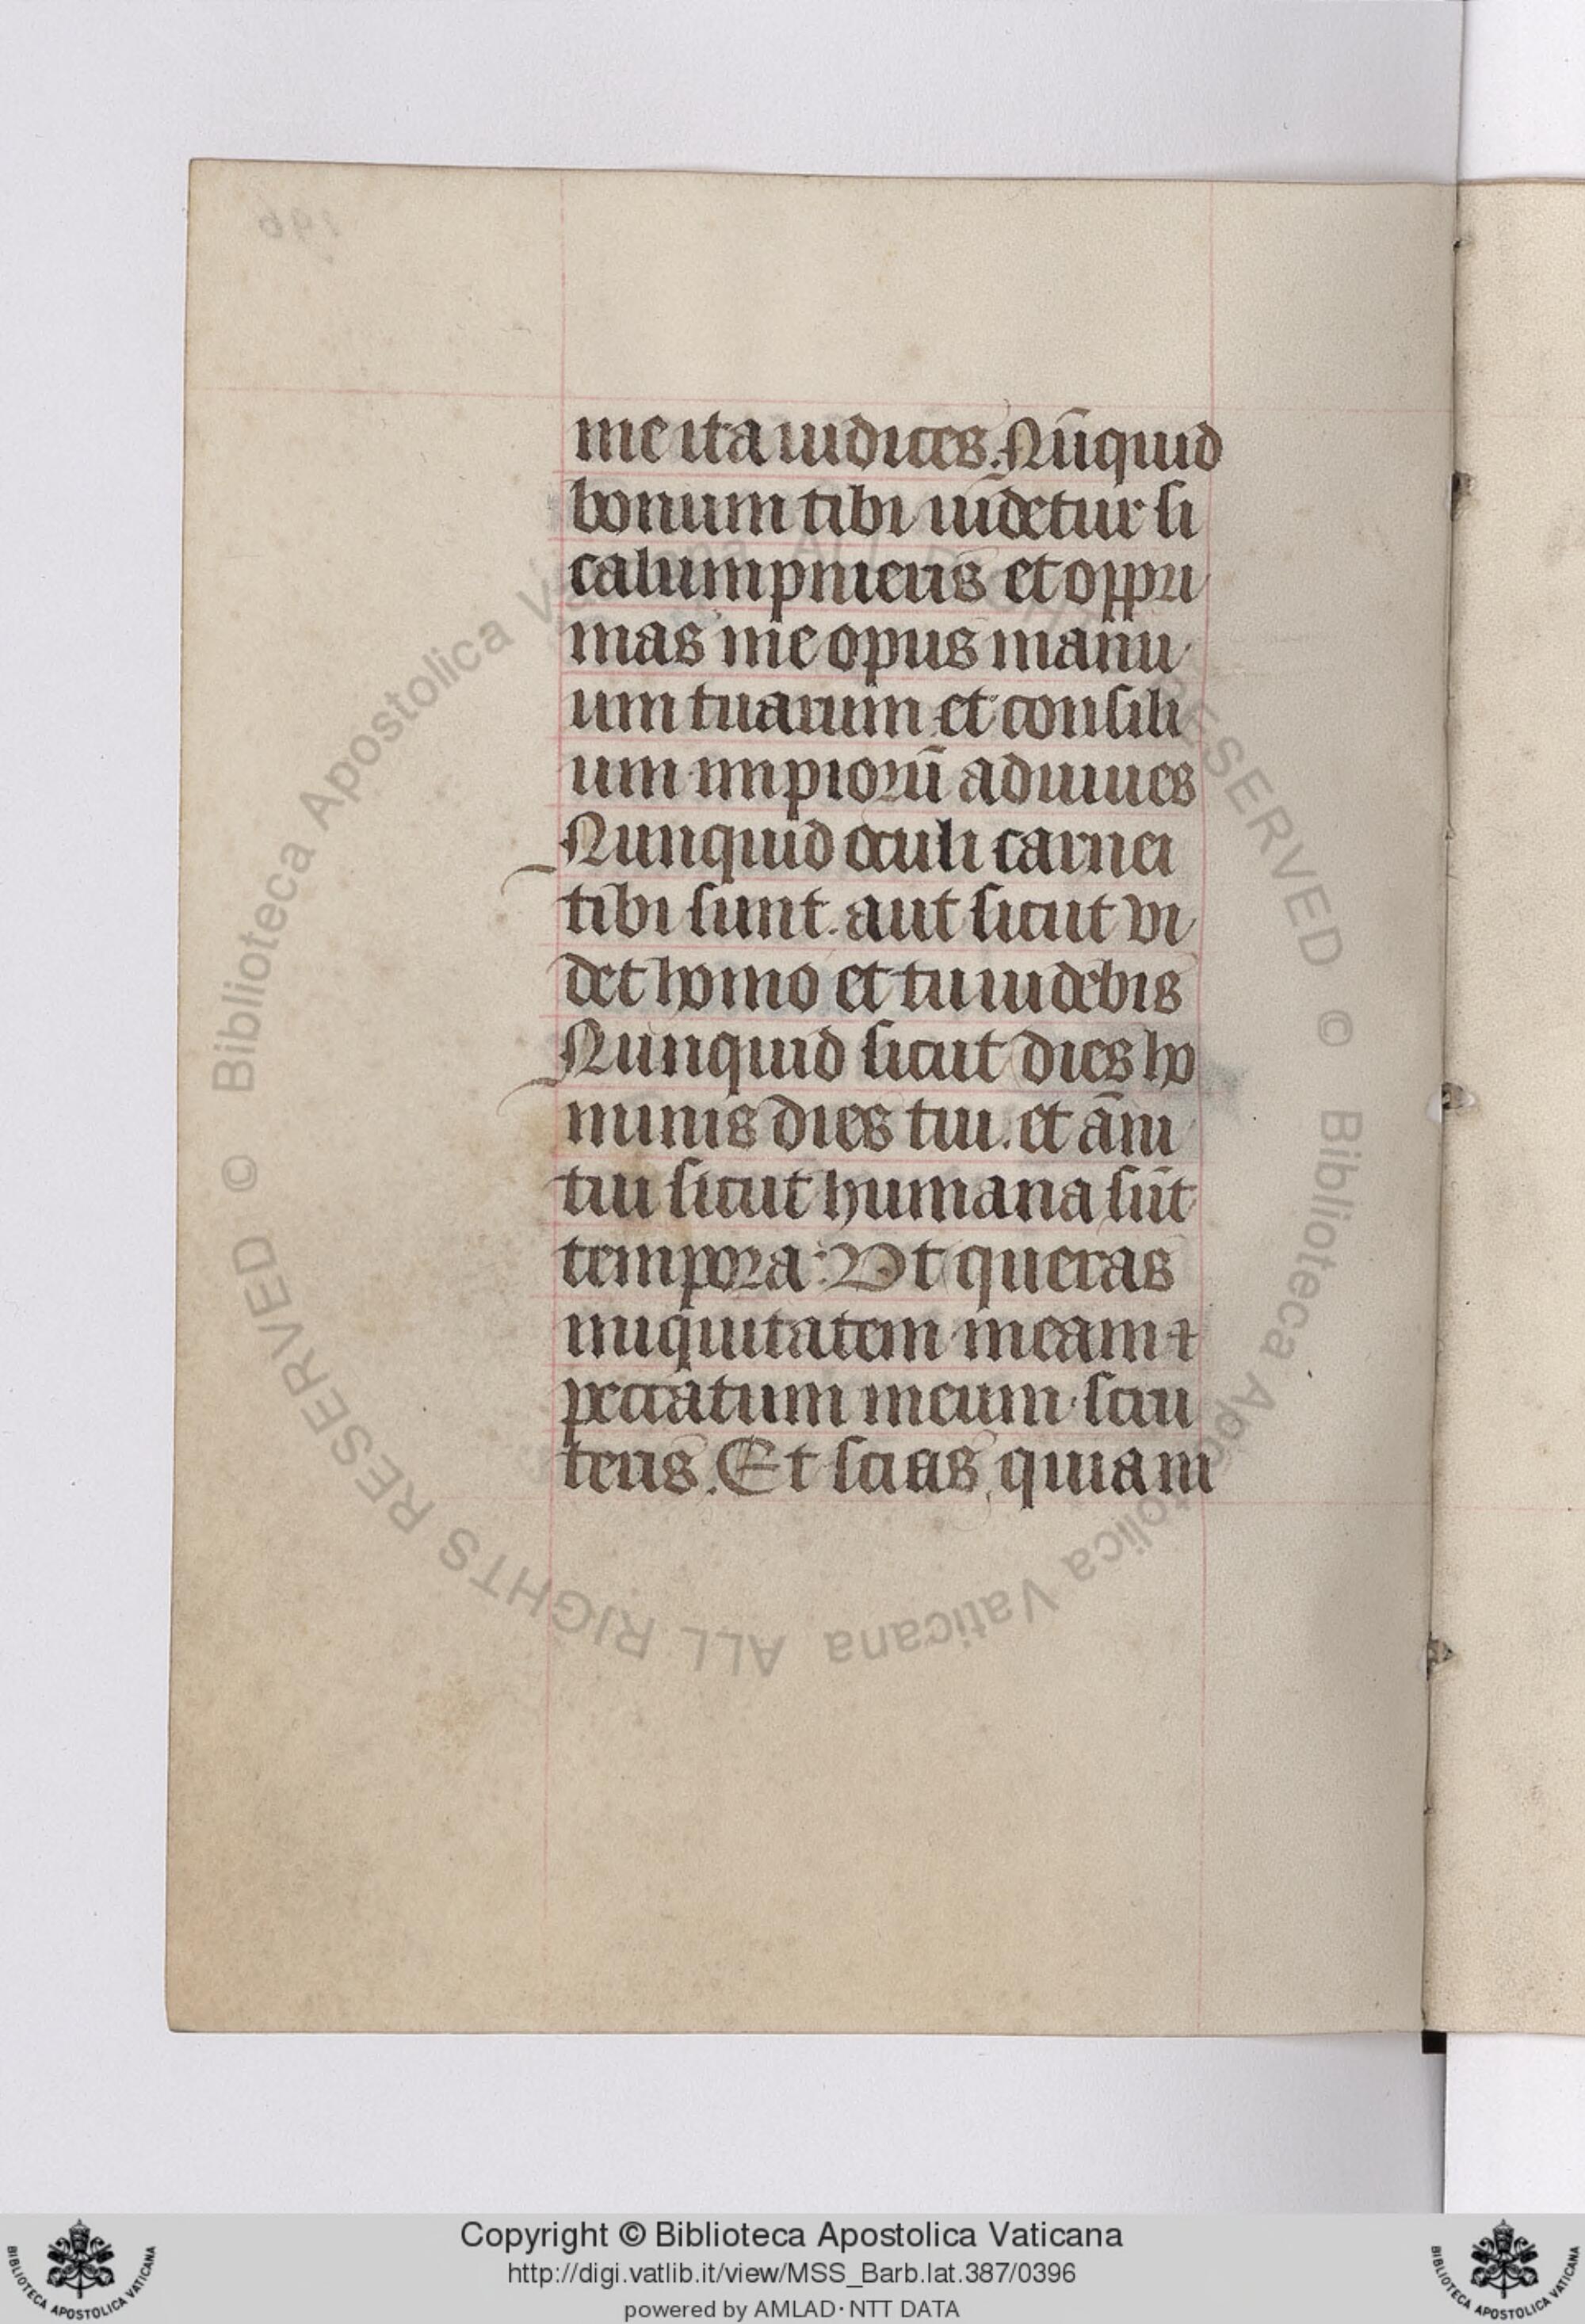 me ita iudices. Nũquid
bonum tibi uidetur si
calumpnieris et oppri
mas me opus manu
um tuarum et consili
um impiorũ adiuues
Nunquid oculi carnei
tibi sunt. aut sicut vi
det homo et tu uidebis
Nunquid sicut dies ho
minis dies tui. et ãni
tui sicut humana sũt
tempora: Vt queras
iniquitatem meam ⁊
peccatum meum scru
teris. Et scias quia ni
© Biblioteca Apostolica Vaticana ALL RIGHTS RESERVED © Biblioteca Apostolica Vaticana ALL RIGHTS RESERVED
Copyright © Biblioteca Apostolica Vaticana
http://digi.vatlib.it/view/MSS_Barb.lat.387/0396
powered by AMLAD · NTT DATA
BIBLIOTECA APOSTOLICA VATICANA
BIBLIOTECA APOSTOLICA VATICANA